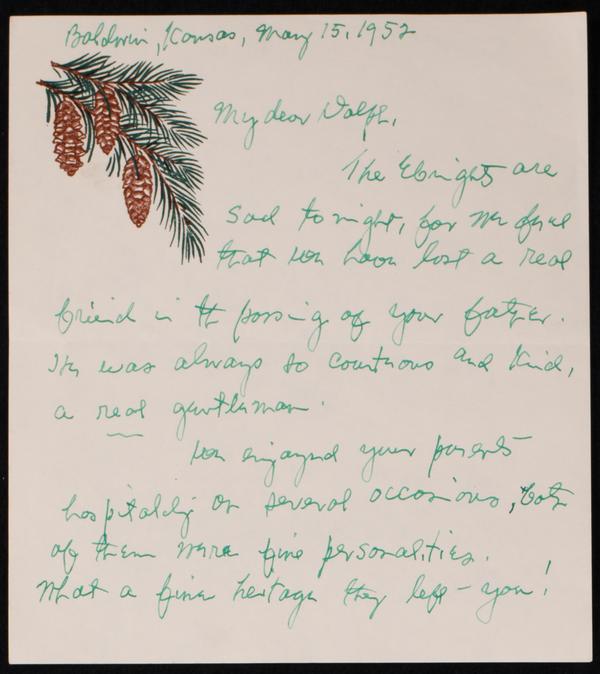 Baldwin, Kansas, May 15, 1952
My dear Dolph,
The Ebrights are
sad tonight, for we feel
that we have lost a real
friend in the passing of your father.
He was always so courteous and kind,
a real gentleman.
We enjoyed your parents
hospitality on several occasions, both
of them were fine personalities.
What a fine heritage they left - you!